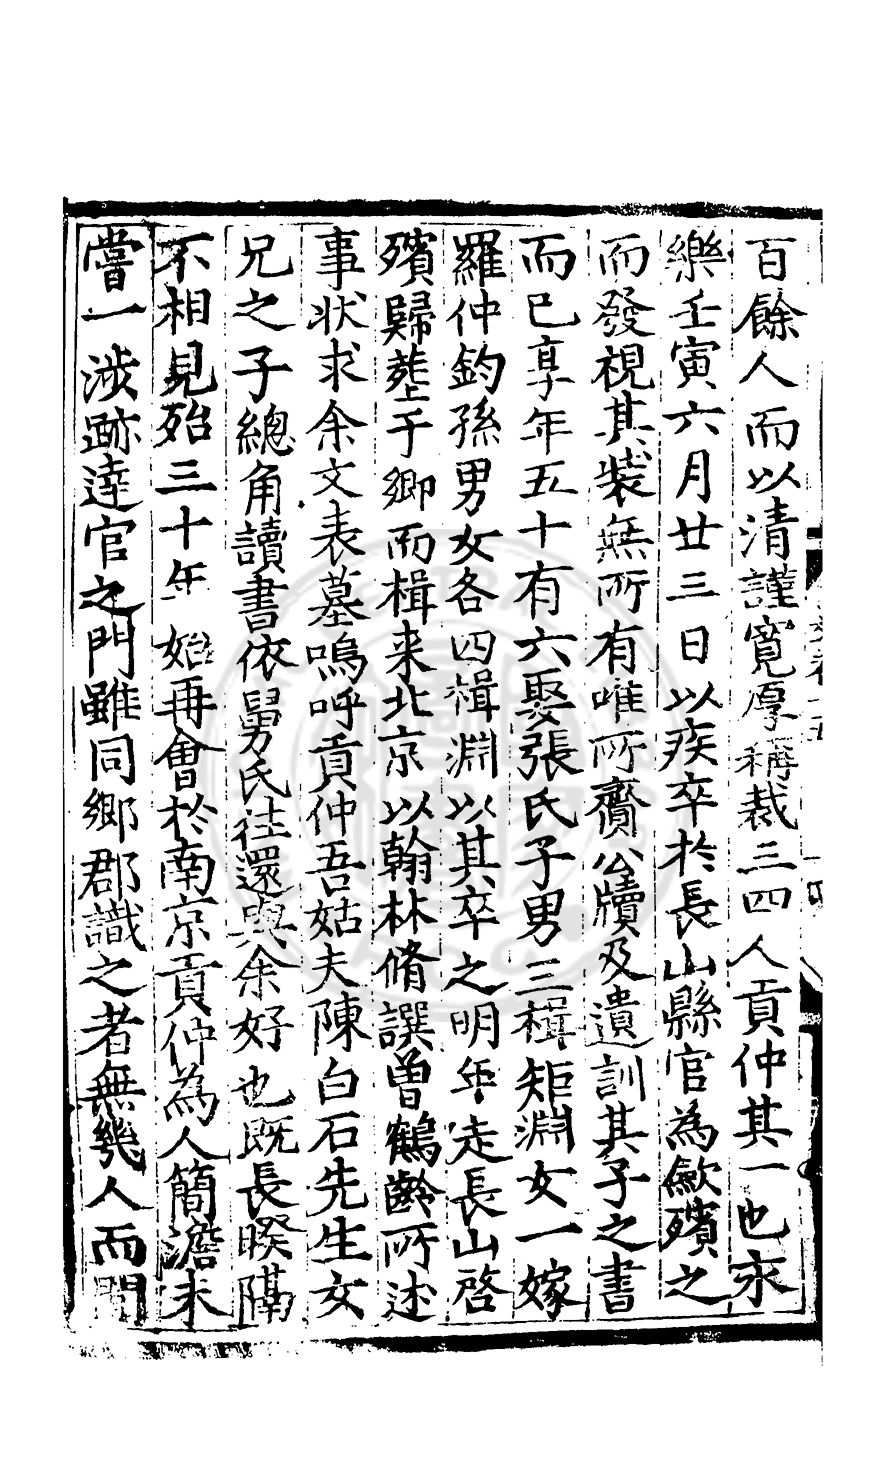 百餘人而以清謹寬厚稱裁三四人貢仲其一也永
樂壬寅六月廿三日以疾卒於長山縣官為斂殯之
而發視其裝無所有唯所齎公牘及遺訓其子之書
而已享年五十有六娶張氏子男三楫矩淵女一嫁
羅仲鈞孫男女各四楫淵以其卒之明年走長山啓
殯歸塟于鄉而楫来北京以翰林脩譔曾鶴齡所述
事状求余文表墓嗚呼貢仲吾姑夫陳白石先生女
兄之子總角讀書依舅氏往還與余好也既長暌隔
不相見殆三十年始再會於南京貢仲為人簡澹未
嘗一涉跡逹官之門雖同鄉郡識之者無幾人而間